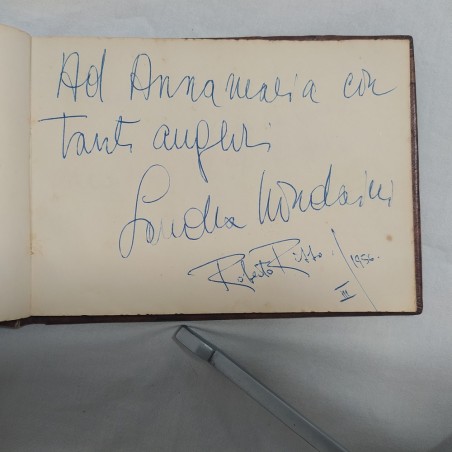 Ad Annamaria con
tanti auguri
Sandra Mondaini
Roberto Rizzo
III / 1956.